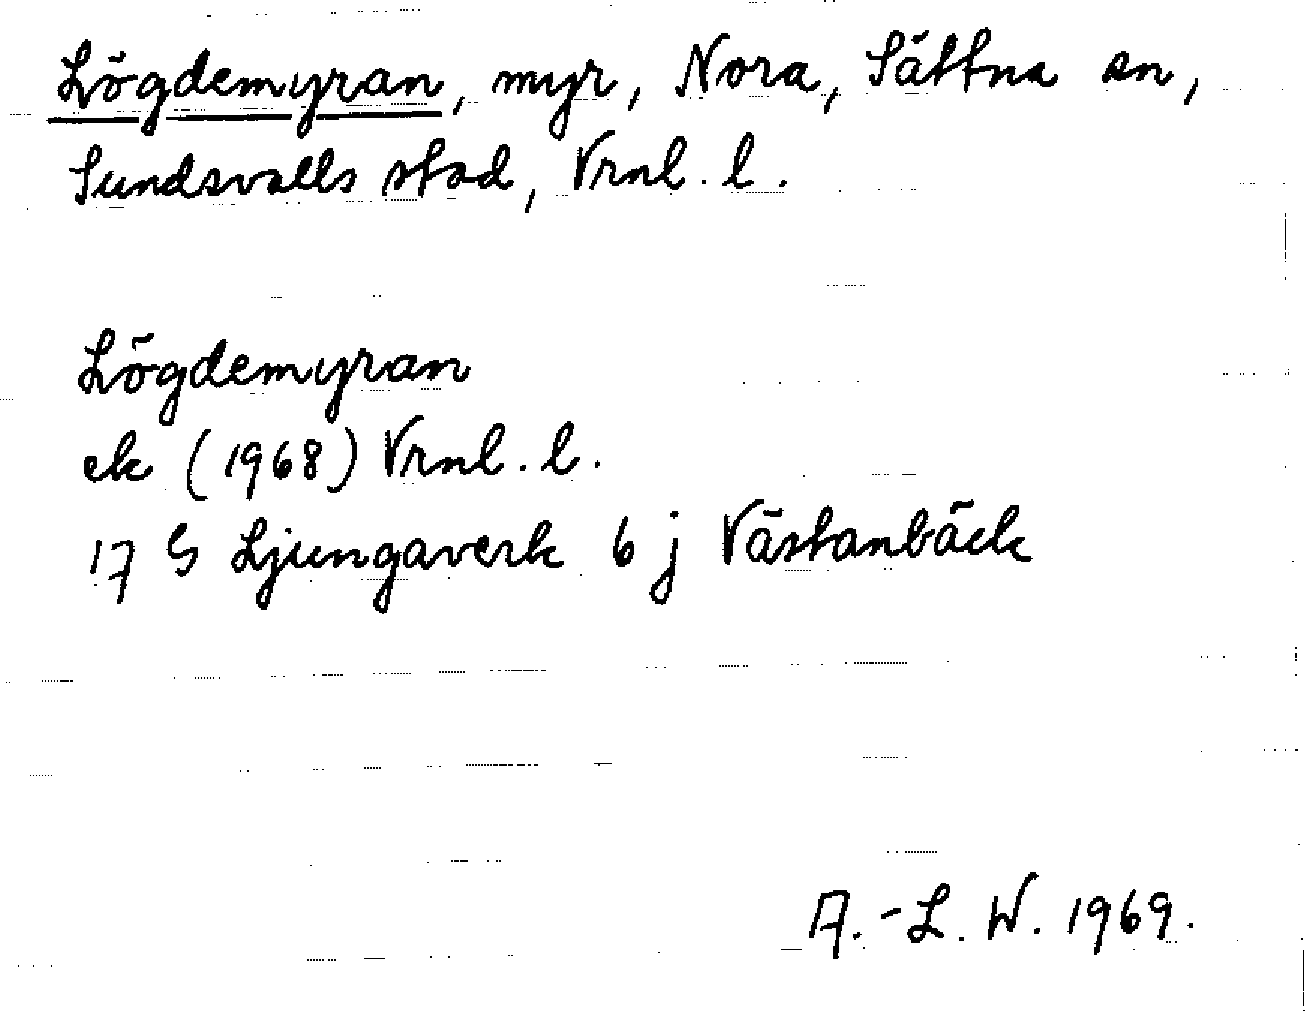 Lögdemyran, myr, Nora, Sättna sn,
Sundsvalls stad, Vrnl. l.
Lögdemyran
ek (1968) Vrnl. l.
17 G Ljungaverk 6 j Västanbäck
A.-L. W. 1969.